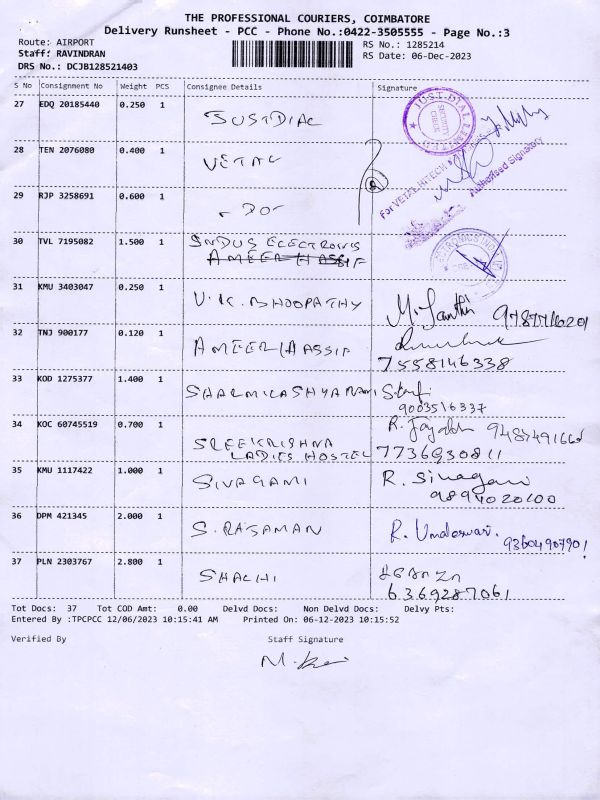 THE PROFESSIONAL COURIERS, COIMBATORE
Delivery Runsheet - PCC - Phone No.:0422-3505555 - Page No.:3
Route: AIRPORT
RS No.: 1285214
Staff: RAVINDRAN
RS Date: 06-Dec-2023
DRS No.: DCJB128521403
S No Consignment No Weight PCS Consignee Details Signature
27 EDQ 20185440 0.250 1 JUSTDIAL
JUST DIAL LIMITED
SECURITY CHECK
28 TEN 2076080 0.400 1
For VETAL HITECH
Authorised Signatory
29 RJP 3258691 0.600 1 - DO -
30 TVL 7195082 1.500 1 INDUS ELECTRONIS
AMEER HASSIF
31 KMU 3403047 0.250 1 V.K. BHOOPATHY M. Santhi
32 TNJ 900177 0.120 1 AMEER HASSIF
7558146338
33 KOD 1275377 1.400 1 SHARMILASHYAM
9003516337
34 KOC 60745519 0.700 1 SREEKRISHNA
LADIES HOSTEL 7736930811
35 KMU 1117422 1.000 1 SIVAGAMI R. Sivagami
9894020100
36 DPM 421345 2.000 1 S. RAJAMAN R. Umaleswari.
9360490790!
37 PLN 2303767 2.800 1 SHACHI
6369287061
Tot Docs: 37 Tot COD Amt: 0.00 Delvd Docs: Non Delvd Docs: Delvy Pts:
Entered By :TPCPCC 12/06/2023 10:15:41 AM Printed On: 06-12-2023 10:15:52
Verified By Staff Signature